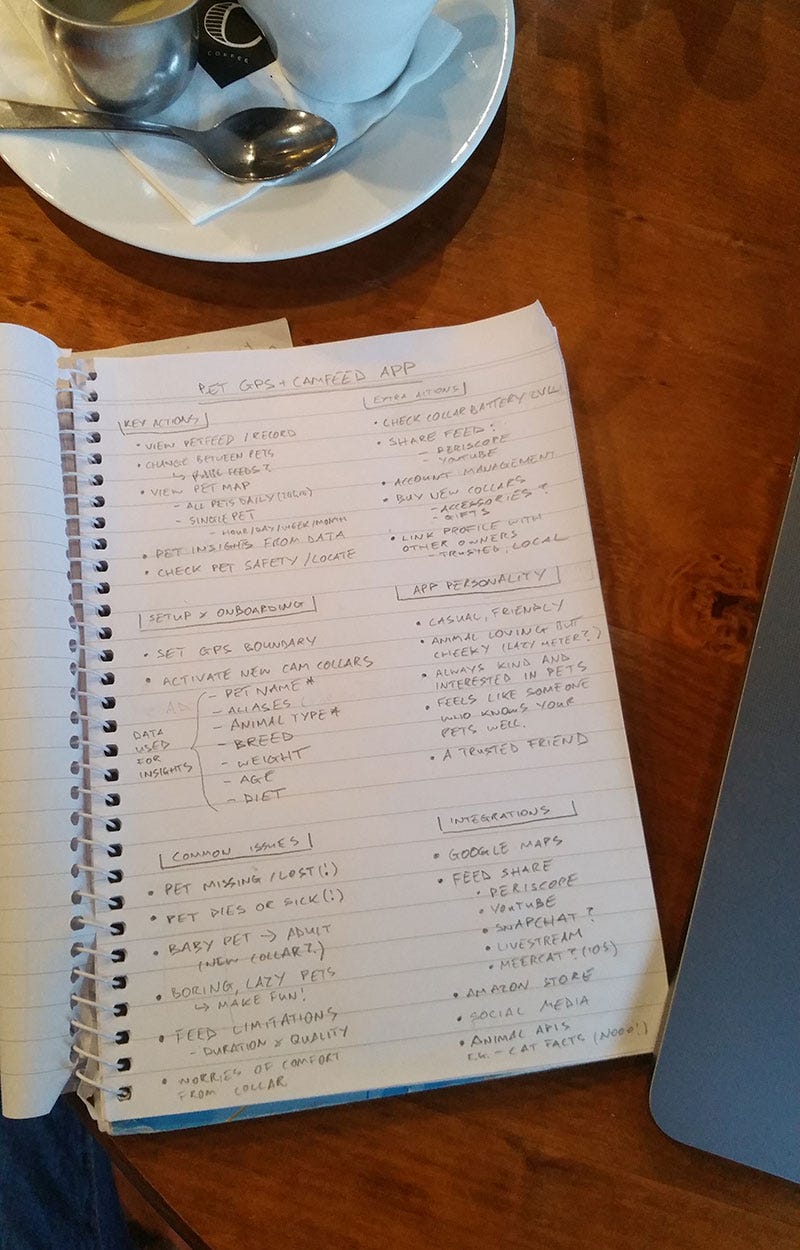 C
COFFEE
PET GPS + CAMFEED APP
KEY ACTIONS
• VIEW PETFEED / RECORD
• CHANGE BETWEEN PETS
↳ FEEDS?
• VIEW PET MAP
- ALL PETS DAILY
- SINGLE PET
- HOUR/DAY/WEEK/MONTH
• PET INSIGHTS FROM DATA
• CHECK PET SAFETY / LOCATE
EXTRA ACTIONS
• CHECK COLLAR BATTERY LVLL
• SHARE FEED?
- PERISCOPE
- YOUTUBE
• ACCOUNT MANAGEMENT
• BUY NEW COLLARS
- ACCESSORIES?
- GIFTS
• LINK PROFILE WITH
OTHER OWNERS
- TRUSTED, LOCAL
SETUP & ONBOARDING
• SET GPS BOUNDARY
• ACTIVATE NEW CAM COLLARS
- PET NAME*
- ALIASES
- ANIMAL TYPE*
- BREED
- WEIGHT
- AGE
- DIET
DATA
USED
FOR
INSIGHTS
APP PERSONALITY
• CASUAL, FRIENDLY
• ANIMAL LOVING BUT
CHEEKY (LAZY METER?)
• ALWAYS KIND AND
INTERESTED IN PETS
• FEELS LIKE SOMEONE
WHO KNOWS YOUR
PETS WELL.
• A TRUSTED FRIEND
COMMON ISSUES
• PET MISSING / LOST (!)
• PET DIES OR SICK (!)
• BABY PET → ADULT
(NEW COLLAR?)
• BORING, LAZY PETS
↳ MAKE FUN!
• FEED LIMITATIONS
- DURATION & QUALITY
• WORRIES OF COMFORT
FROM COLLAR
INTEGRATIONS
• GOOGLE MAPS
• FEED SHARE
• PERISCOPE
• YOUTUBE
• SNAPCHAT?
• LIVESTREAM
• MEERCAT? (IOS)
• AMAZON STORE
• SOCIAL MEDIA
• ANIMAL APIS
E.G. - CAT FACTS (NOOO!)